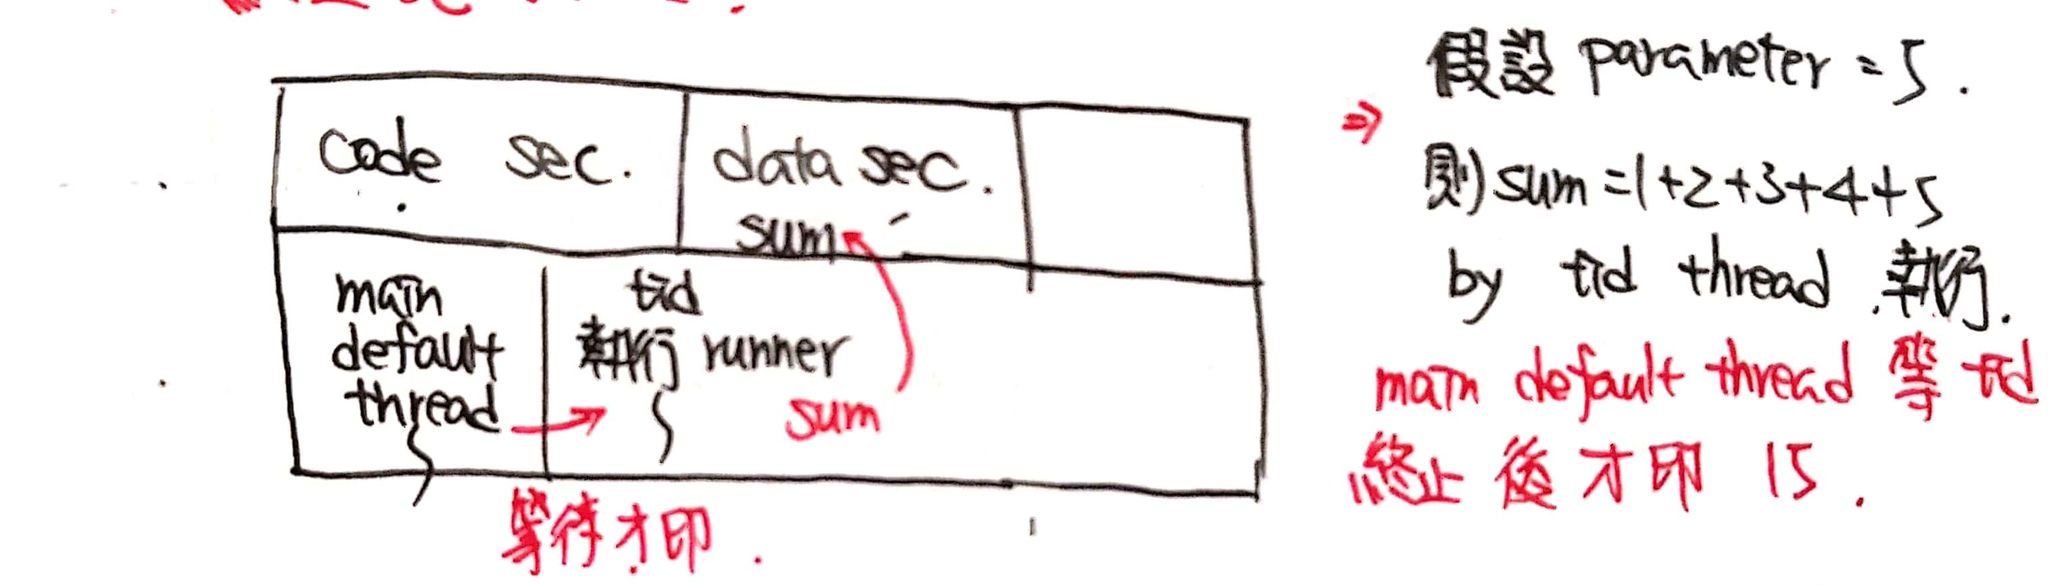 code sec.
data sec.
sum
main
default
thread
tid
執行 runner
sum
等待才印.
假設 parameter = 5.
⇒
則 sum = 1+2+3+4+5
by tid thread 執行.
main default thread 等 tid
終止後才印 15.